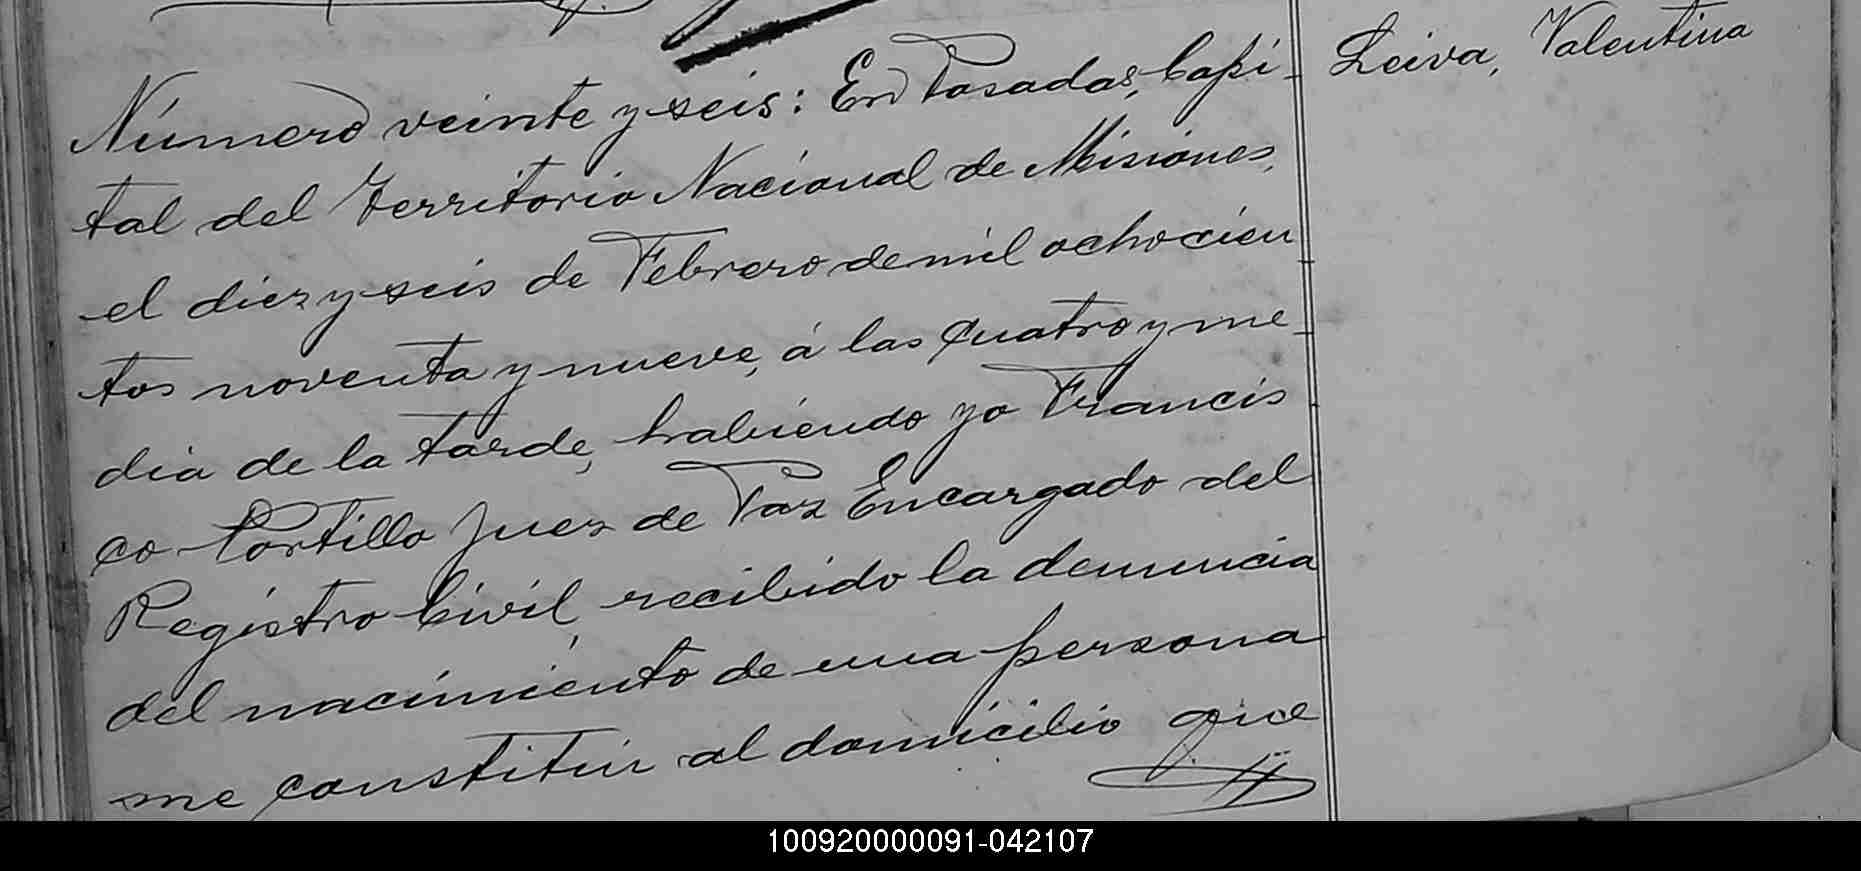 Número veinte y seis: En Posadas, Capi-
tal del Territorio Nacional de Misiones,
el diez y seis de Febrero de mil ochocien
tos noventa y nueve, á las cuatro y me-
dia de la tarde, habiendo yo Francis
co Portillo Juez de Paz Encargado del
Registro Civil, recibido la denuncia
del nacimiento de una persona
me constituí al domicilio que
Leiva, Valentina
100920000091-042107